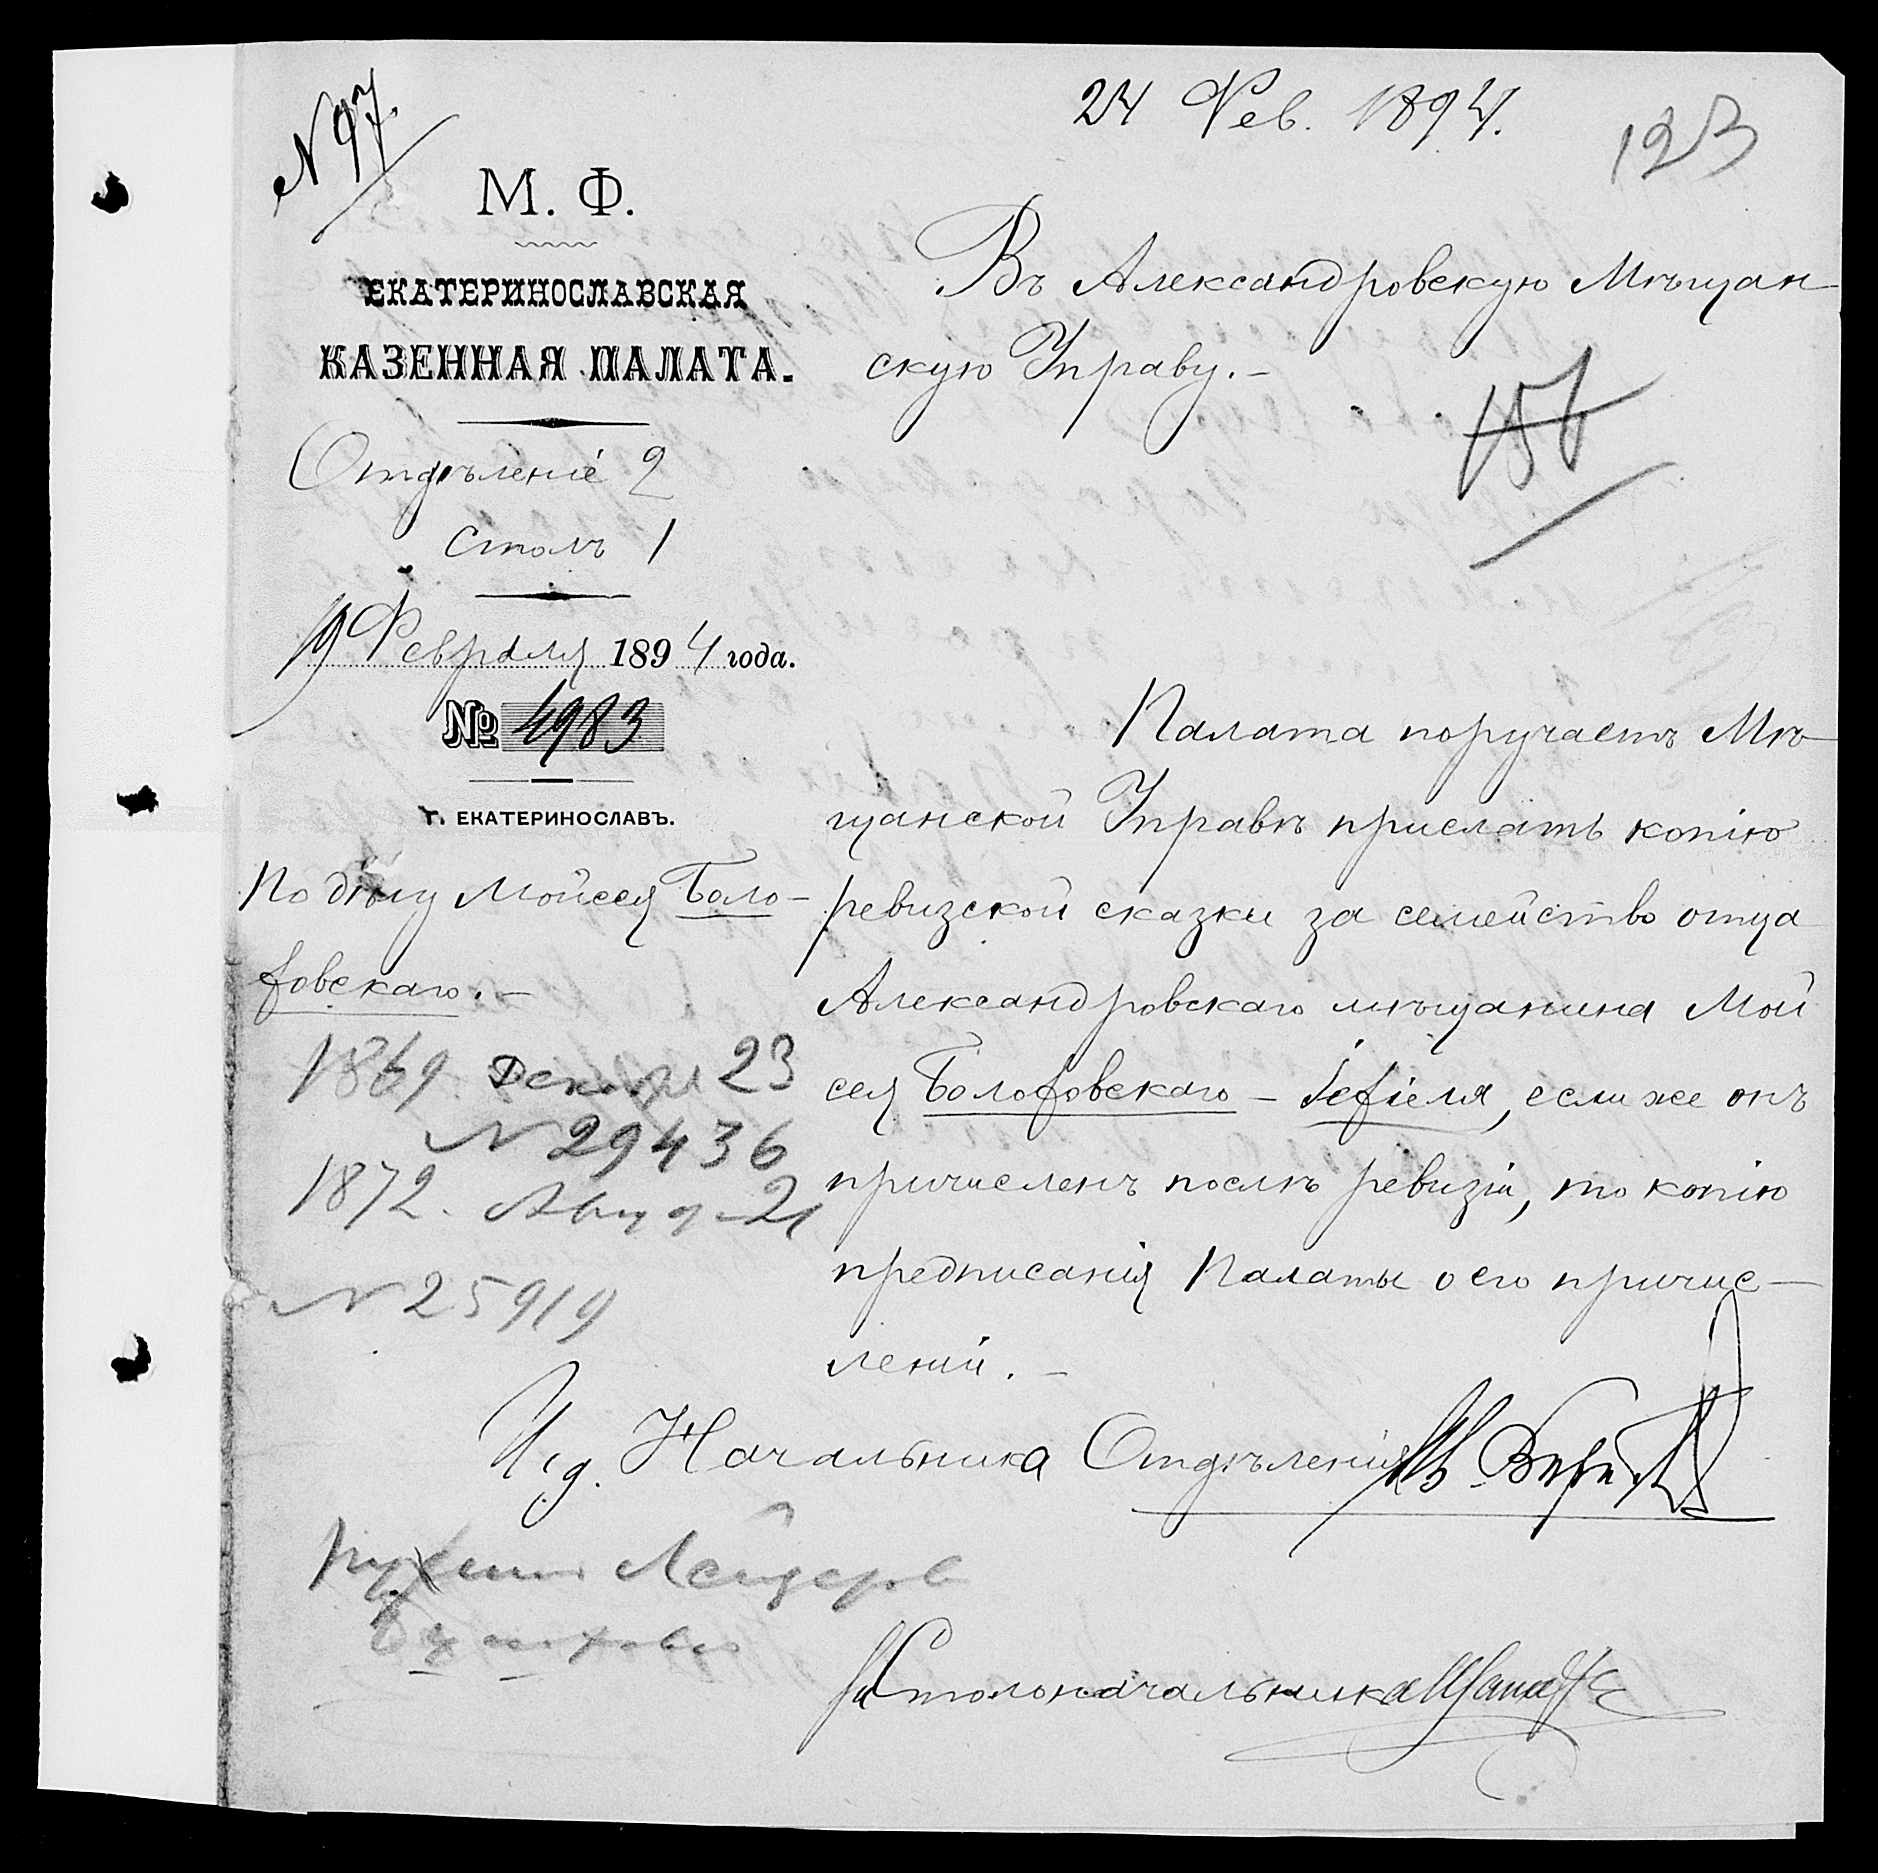 N 97.
24 Фев. 1894.
123
М. Ф.
ЕКАТЕРИНОСЛАВСКАЯ
КАЗЕННАЯ ПАЛАТА.
Отдѣленіе 2
Столъ 1
19 Февраля 1894 года.
№ 4983
г. ЕКАТЕРИНОСЛАВЪ.
По дѣлу Мойсея Боло-
ѳовскаго.-
1869 Декабря 23
N 29436
1872. Авгу 21
N 25919
Въ Александровскую Мѣщан-
скую Управу.-
156
Палата поручаетъ Мѣ-
щанской Управѣ прислать копію
ревизской сказки за семейство отца
Александровскаго мѣщанина Мой
сея Болоѳовскаго - Іеѳіеля, если же онъ
причисленъ послѣ ревизіи, то копію
предписанія Палаты о его причис-
леніи.-
И. д. Начальника Отдѣленія
За Столоначальника